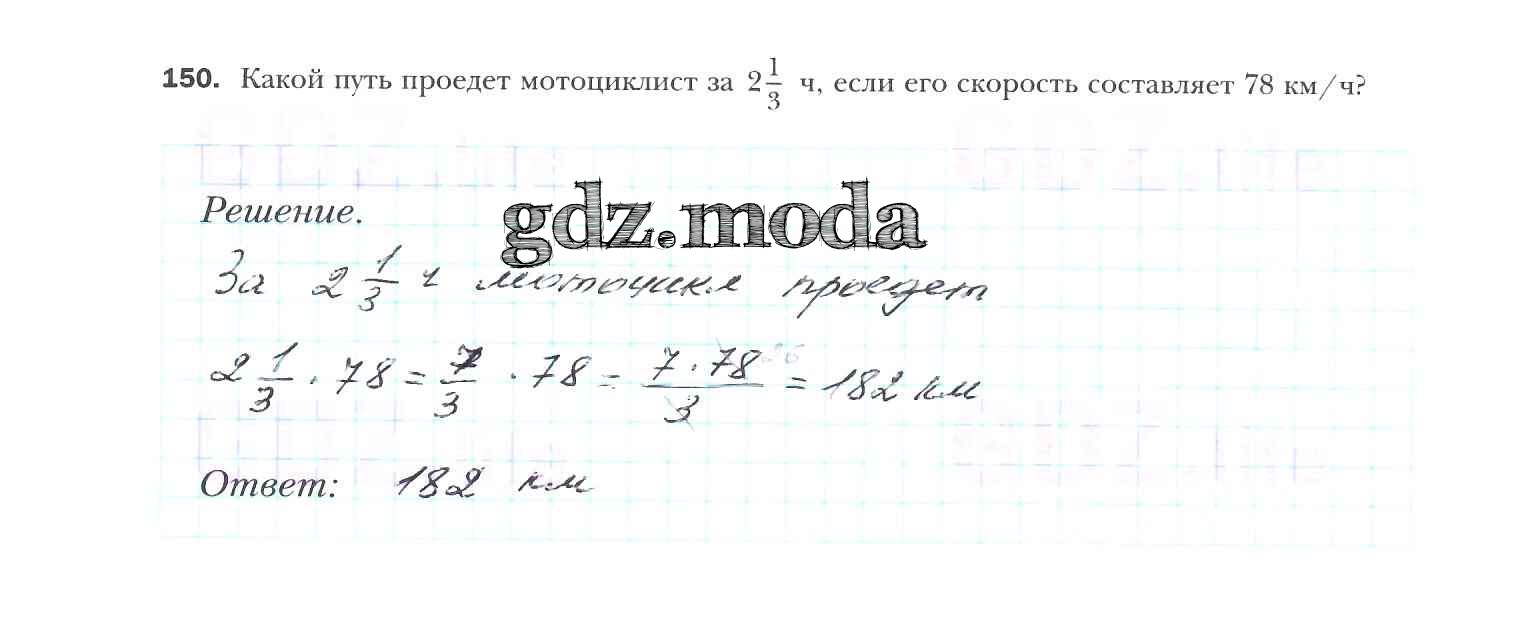 150. Какой путь проедет мотоциклист за 2 1/3 ч, если его скорость составляет 78 км/ч?
Решение.
gdz.moda
За 2 1/3 ч мотоцикл проедет
2 1/3 · 78 = 7/3 · 78 = 7 · 78 26 / 3 = 182 км
Ответ: 182 км